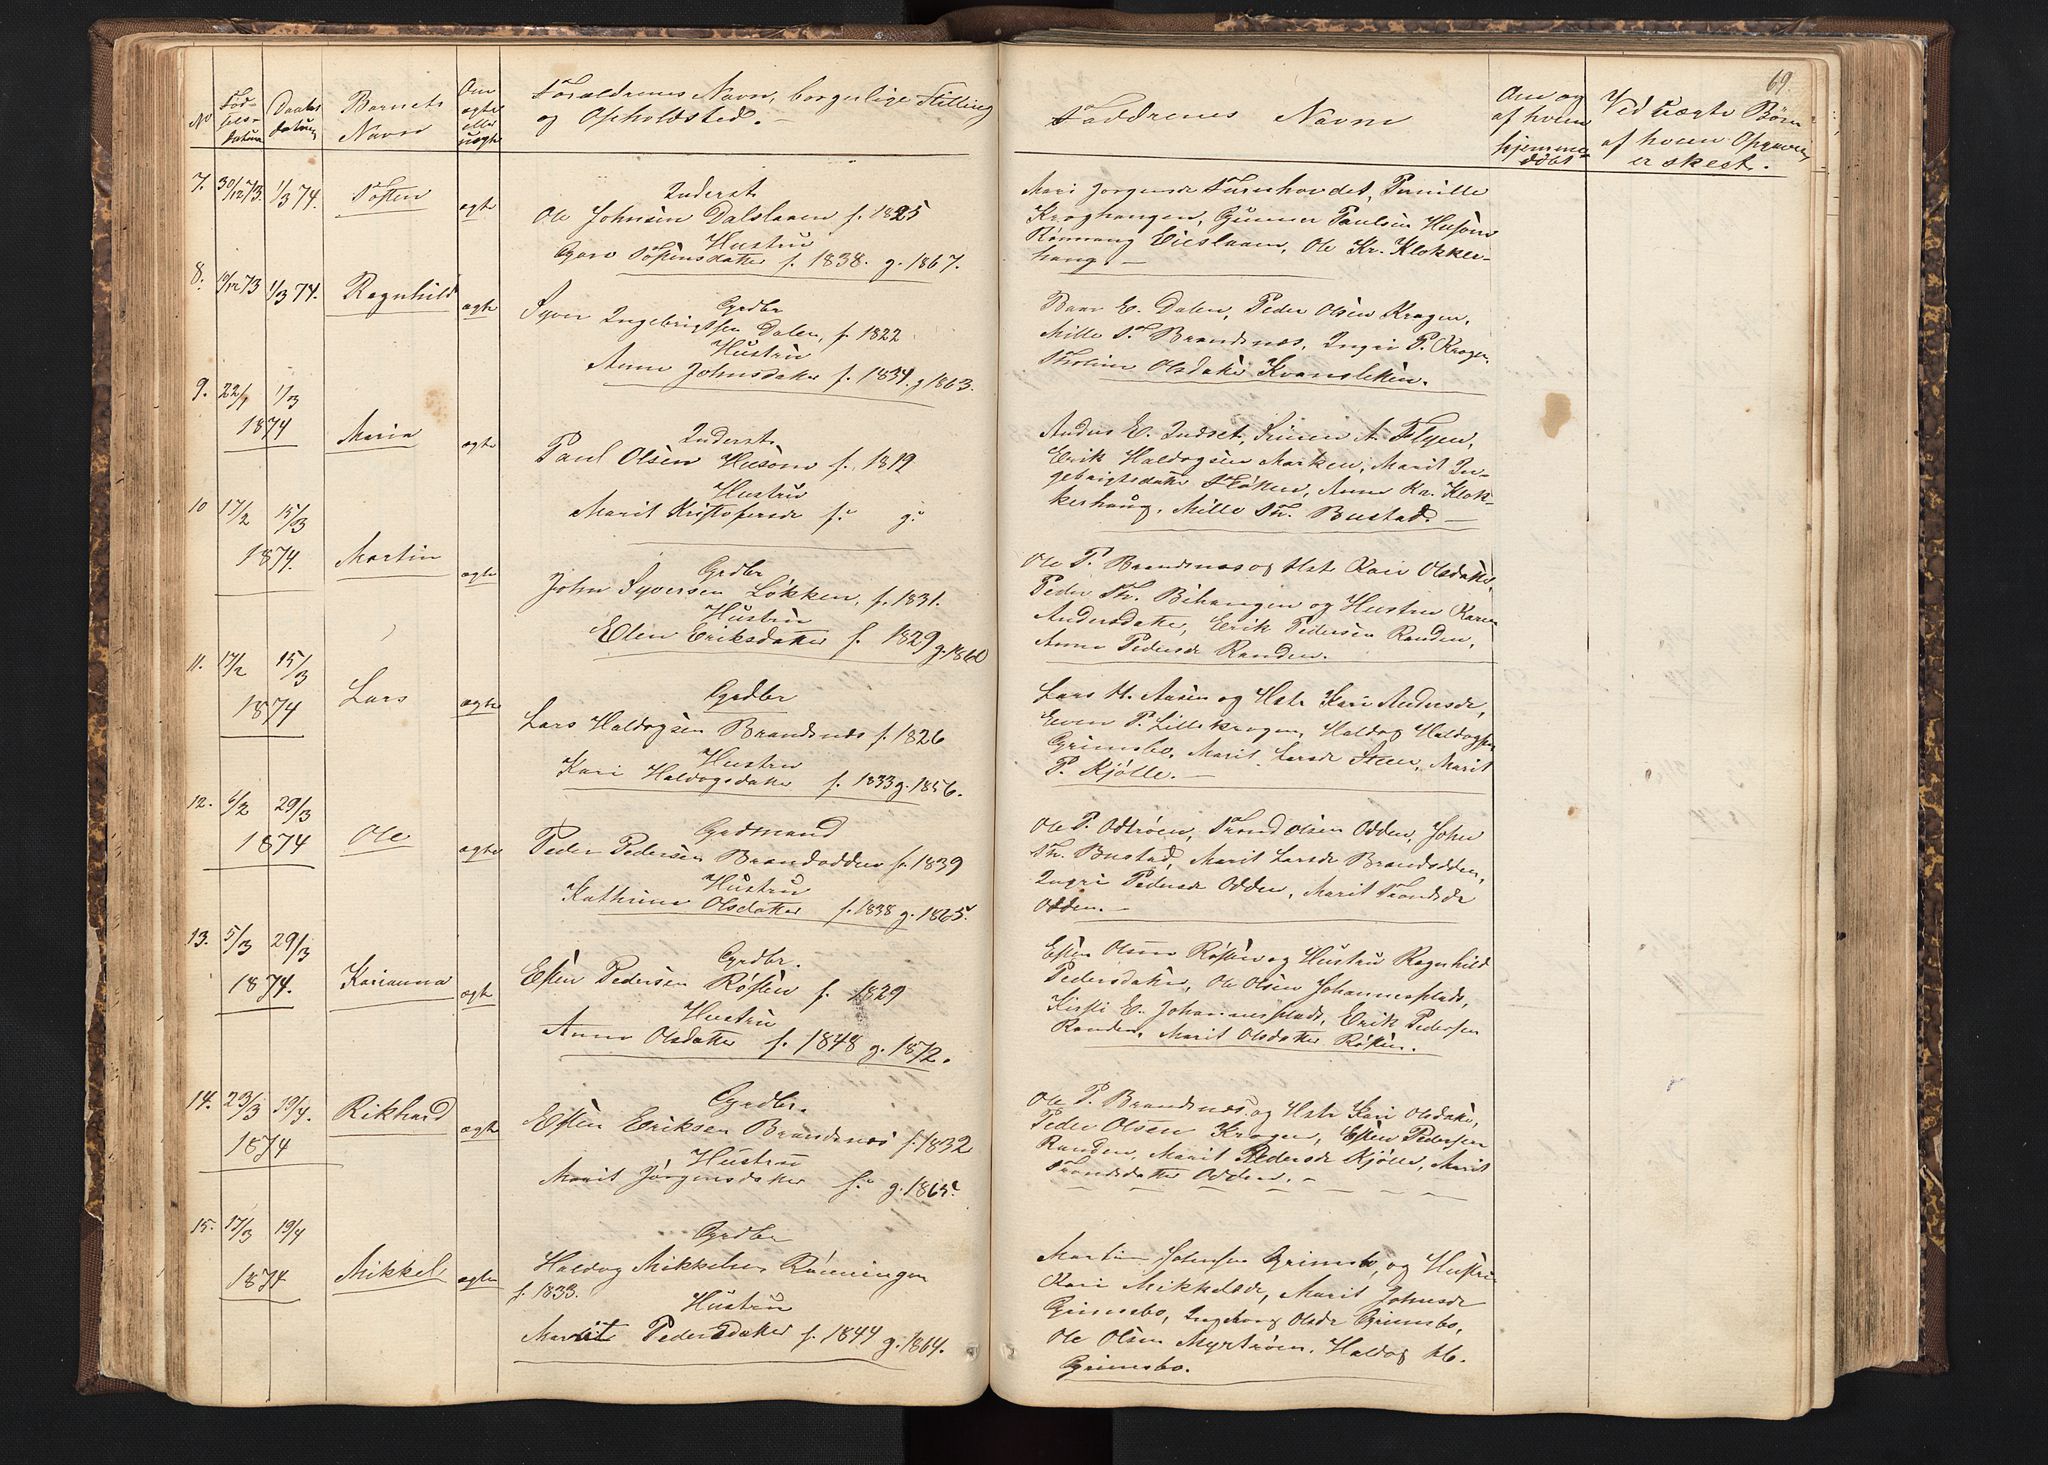 69.
No
Fød-
sels-
datum
Daabs
datum
Barnets
Navn
Om
ægte
eller
uægte
Forældrenes Navn, borgerlige Stilling
og Opholdsted. -
Faddrenes Navn
Om og
af hvem
hjemme-
døbt
Ved uægte Børn
af hvem Opgaven
er skeet.
7. 30/12 73. 1/3 74. Østen ægte
Inderst
Ole Johnsen Dalslaaen f. 1825
Hustru
Goro Østensdatter f. 1838. g. 1867.
Mari Jørgensdr Turnhovdet, Pernille
Kroghaugen, Gunner Paulsen Husom
Rønnaug Eieslaaen, Ole Kr. Klokker-
haug. -
8. 13/12 73 1/3 74. Ragnhild ægte
Grdbr
Syver Ingebrigtsen Dalen, f. 1822
Hustru
Anne Johnsdatter f. 1834. g 1863.
Baar E. Dalen, Peder Olsen Krogen,
Mille T. Brandsnæs, Ingri P. Krogen,
Olsdatter Kvansletten.
9. 22/1 1/3
1874 Maria ægte
Inderst
Paul Olsen Husom f. 1819
Hustru
Marit Kristofersdr f: g:
Anders E. Indset, Simen A. Flyen,
Erik Haldogsen Marken, Marit In-
gebrigtsdatter Støken, Anne Kr. Klok-
kerhaug, Mille Th. Bustad. -
10 17/2 15/3
1874. Martin ægte
Grdbr
John Syversen Løkken, f. 1831.
Hustru
Elen Eriksdatter f. 1829 g. 1860
Ole P. Brandsnæs og Hstr Kari Olsdatter,
Peder Th. Bihaugen og Hustru Karen
Andersdatter, Erik Pedersen Randen,
Anne Pedersdr Randen.
11. 17/2 15/3
1874 Lars ægte
Grdbr
Lars Haldogsen Brandsnæs f. 1826
Hustru
Kari Haldogsdatter f. 1833 g. 1856.
Lars H. Aasen og Hstr Kari Andersdr,
Even P. Lillekrogen, Haldog Haldogsen
Grimsbo, Marit Larsdr Steen, Marit
P. Kjølle. -
12. 6/2 29/3
1874 Ole ægte
Grdmand
Peder Pedersen Brandsodden f. 1839
Hustru
Kathrine Olsdatter f. 1838 g. 1865.
Ole P. Odtrøen, Trond Olsen Odden, John
Th. Bustad, Marit Larsdr Brandsodden,
Ingri Pedersdr Odden, Marit Trondsdr
Odden. -
13. 5/3 29/3
1874. Karianna ægte
Grdbr.
Esten Pedersen Røsten f. 1829
Hustru
Anne Olsdatter f. 1848 g. 1872.
Esten Olsen Røsten og Hustru Ragnhild
Pedersdatter, Ole Olsen Johannesplads,
Kisti E. Johannesplads, Erik Pedersen
Randen, Marit Olsdatter Røsten.
14. 23/3 19/4. Rikhard ægte
1874
Grdbr.
Esten Eriksen Brandsnæs f. 1832
Hustru
Marit Jørgensdatter f: g. 1865.
Ole P. Brandsnæs og Hstr Kari Olsdatter,
Peder Olsen Krogen, Esten Pedersen
Randen, Marit Pedersdr Kjølle, Marit
Trondsdatter Odden. -
15. 17/3 19/4
1874 Mikkel ægte
Grdbr
Haldog Mikkelsen Rønningen
f. 1833.
Hustru
Marit Pedersdatter f. 1844 g. 1864.
Martin Grimsbo, og Hustru
Kari Mikkelsdr, Marit Johnsdr
Grimsbo, Ingeborg Olsdr Grimsbo,
Ole Olsen Myrtrøen, Haldog Hb.
Grimsbo.